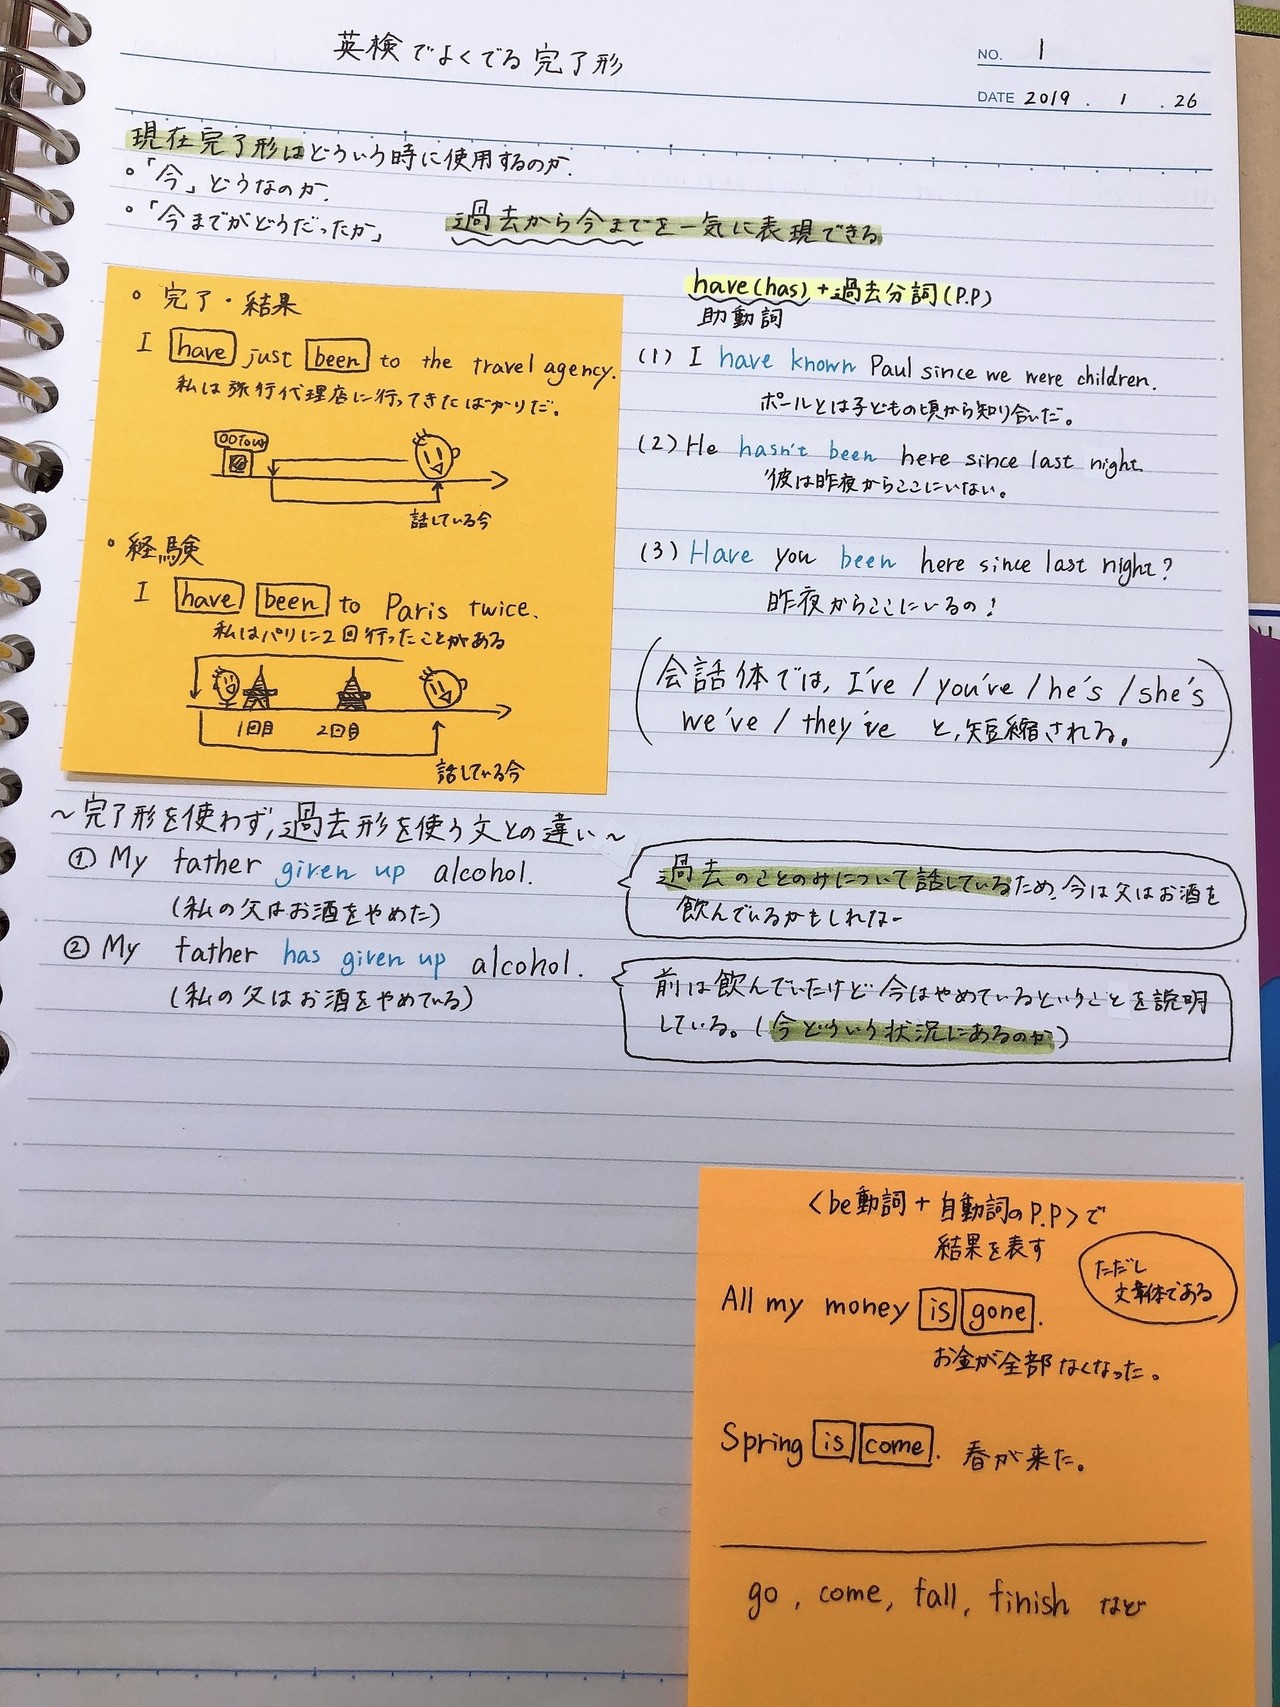 英検でよくでる完了形
NO. 1
DATE 2019 . 1 . 26
現在完了形はどういう時に使用するのか.
・「今」どうなのか.
・「今までがどうだったか」 過去から今までを一気に表現できる
・完了・結果
I have just been to the travel agency.
私は旅行代理店に行ってきたばかりだ。
OOTour
話している今
・経験
I have been to Paris twice.
私はパリに2回行ったことがある
1回目 2回目
話している今
have(has)+過去分詞(P.P)
助動詞
(1) I have known Paul since we were children.
ポールとは子どもの頃から知り合いだ。
(2) He hasn't been here since last night.
彼は昨夜からここにいない。
(3) Have you been here since last night?
昨夜からここにいるの?
(会話体では, I've / you've / he's / she's
we've / they've と,短縮される。)
～完了形を使わず,過去形を使う文との違い～
① My father given up alcohol.
(私の父はお酒をやめた)
過去のことのみについて話しているため,今は父はお酒を
飲んでいるかもしれなー
② My father has given up alcohol.
(私の父はお酒をやめている)
前は飲んでいたけど今はやめているということを説明
している。(今どういう状況にあるのか)
<be動詞+自動詞のP.P>で
結果を表す
ただし
文章体である
All my money is gone.
お金が全部なくなった。
Spring is come. 春が来た。
go, come, fall, finish など